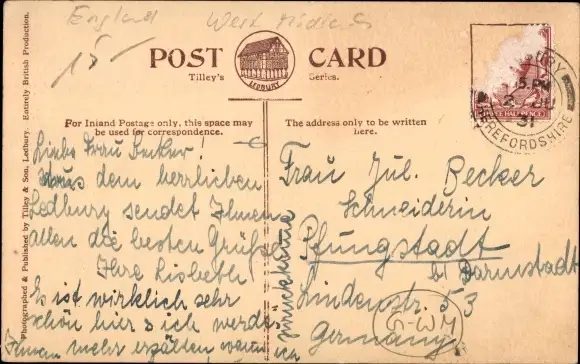 England West Midlands
15-
POST CARD
Tilley's Series.
LEDBURY
For Inland Postage only, this space may
be used for correspondence.
The address only to be written
here.
Photographed & Published by Tilley & Son, Ledbury. Entirely British Production.
5. PM
31
HEREFORDSHIRE
Liebe Frau Becker!
Aus dem herrlichen
Ledbury sendet Ihnen
allen die besten Grüße
Ihre Lisbeth
Es ist wirklich sehr
schön hier & ich werde
Ihnen mehr erzälten wenn
ich
zurückkomme
Frau Jul. Becker
Schneiderin
Pfungstadt
bl Darmstadt
Lindenstr. 53
Germany
G-WM